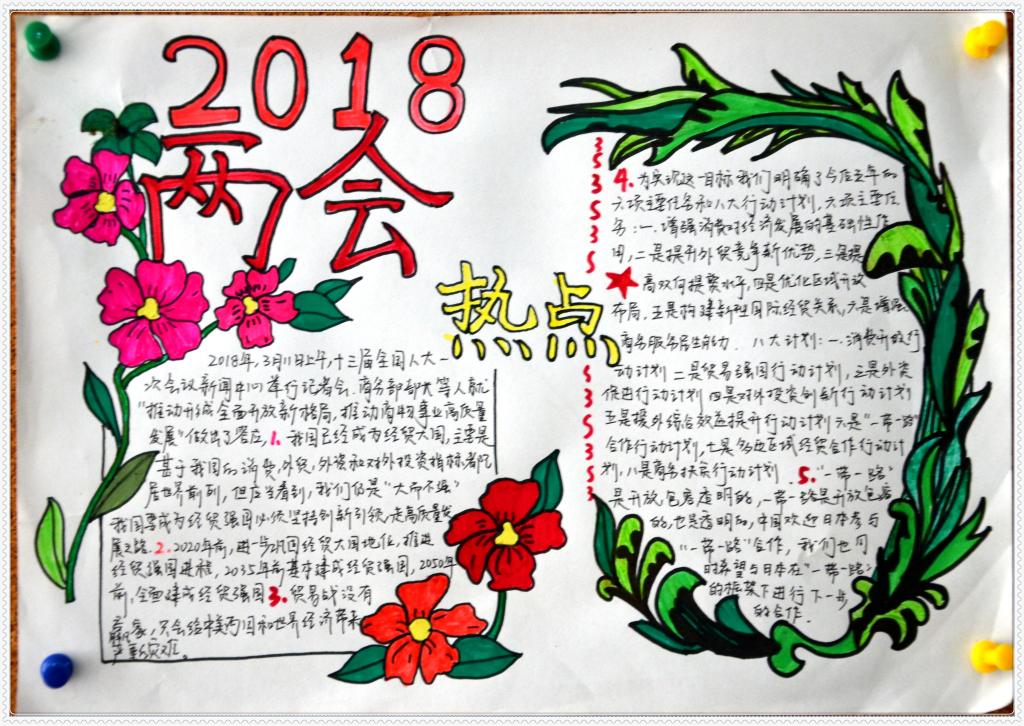 2018
两会
热点
2018年,3月11日上午,十三届全国人大一
次会议新闻中心举行记者会.商务部部长等人就
"推动形成全面开放新格局,推动商务事业高质量
发展"做出了答应,1.我国已经成为经贸大国,主要是
基于我国的消费,外贸,外资和对外投资指标都已
居世界前列,但应当看到,我们仍是"大而不强"
我国要成为经贸强国必须坚持创新引领,走高质量发
展之路.2.2020年前,进一步巩固经贸大国地位,推进
经贸强国进程,2035年前基本建成经贸强国,2050年
前,全面建成经贸强国3.贸易战没有
赢家,只会给中美两国和世界经济带来
严重灾难。
4.为实现这一目标我们明确了今后五年的
六项主要任务和八大行动计划,六项主要任
务:一.增强消费对经济发展的基础性作
用,二是提升外贸竞争新优势,三是提
高双向投资水平,四是优化区域开放
布局,五是构建新型国际经贸关系,六是增强
商务服务民生能力. 八大计划:一.消费升级行
动计划二是贸易强国行动计划,三是外资
促进行动计划四是对外投资创新行动计划
五是援外综合效益提升行动计划六是"一带一路"
合作行动计划,七是多边区域经贸合作行动计
划,八是商务扶贫行动计划. 5."一带一路"
是开放,包容透明的,一带一路是开放包容
的,也是透明的,中国欢迎日本参与
"一带一路"合作,我们也同
时希望与日本在"一带一路"
的框架下进行下一步
的合作.